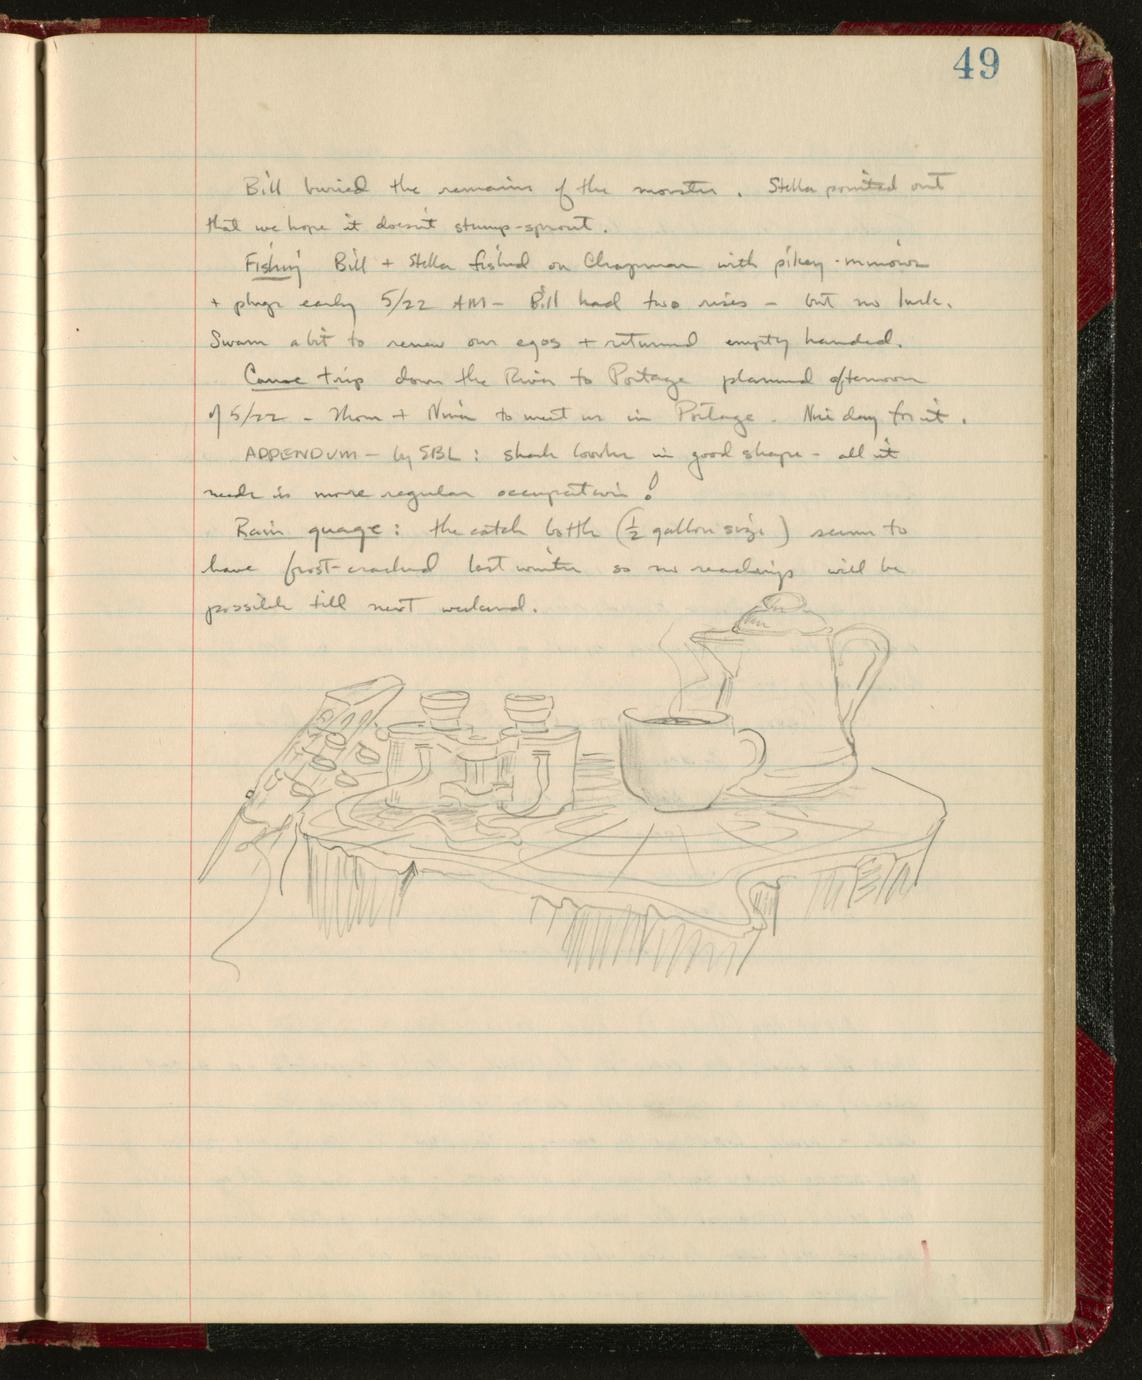 49
Bill buried the remains of the monster. Stella pointed out
that we hope it doesn't stump-sprout.
Fishing Bill + Stella fished on Chapman with pikey-minnows
+ plugs early 5/22 AM - Bill had two rises - but no luck.
Swam a bit to renew our egos + returned empty handed.
Canoe trip down the River to Portage planned afternoon
of 5/22 - Thom + Nina to meet us in Portage. Nice day for it.
APPENDUM - by SBL: shack looks in good shape - all it
needs is more regular occupation!
Rain guage: the catch bottle (1/2 gallon size) seems to
have frost-cracked last winter so no readings will be
possible till next weekend.